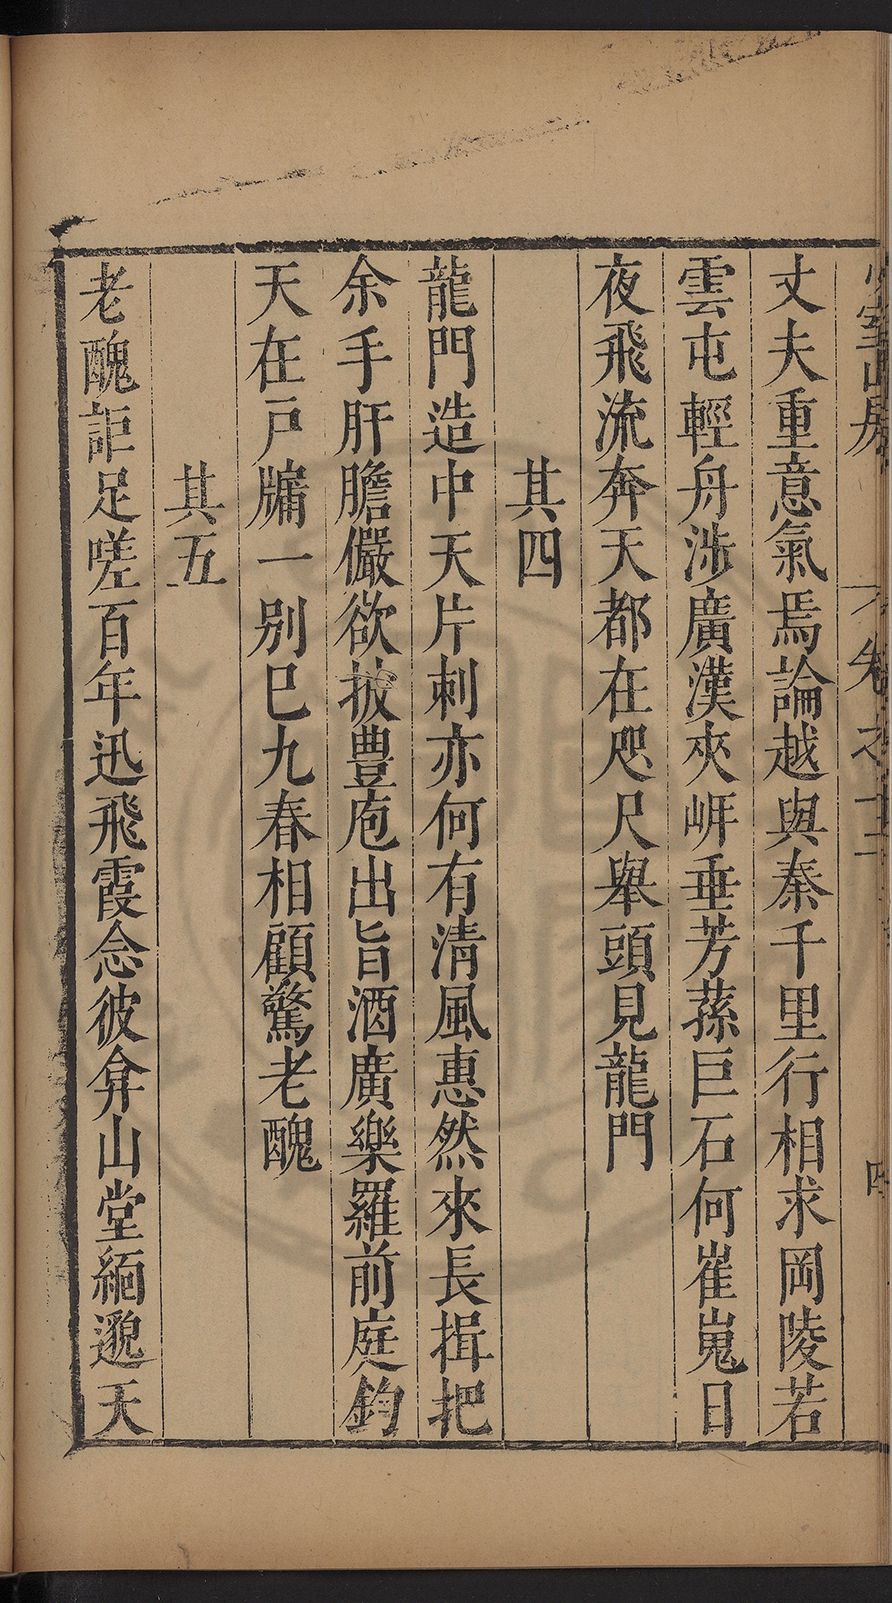 丈夫重意氣焉論越與秦千里行相求岡陵若
雲屯輕舟涉廣漢夾岍垂芳蓀巨石何崔嵬日
夜飛流奔天都在咫尺舉頭見龍門
其四
龍門造中天片刺亦何有清風惠然來長揖把
余手肝膽儼欲披豊庖出旨酒廣樂羅前庭鈞
天在戶牖一別巳九春相顧驚老醜
其五
老醜詎足嗟百年迅飛霞念彼弇山堂緬邈天